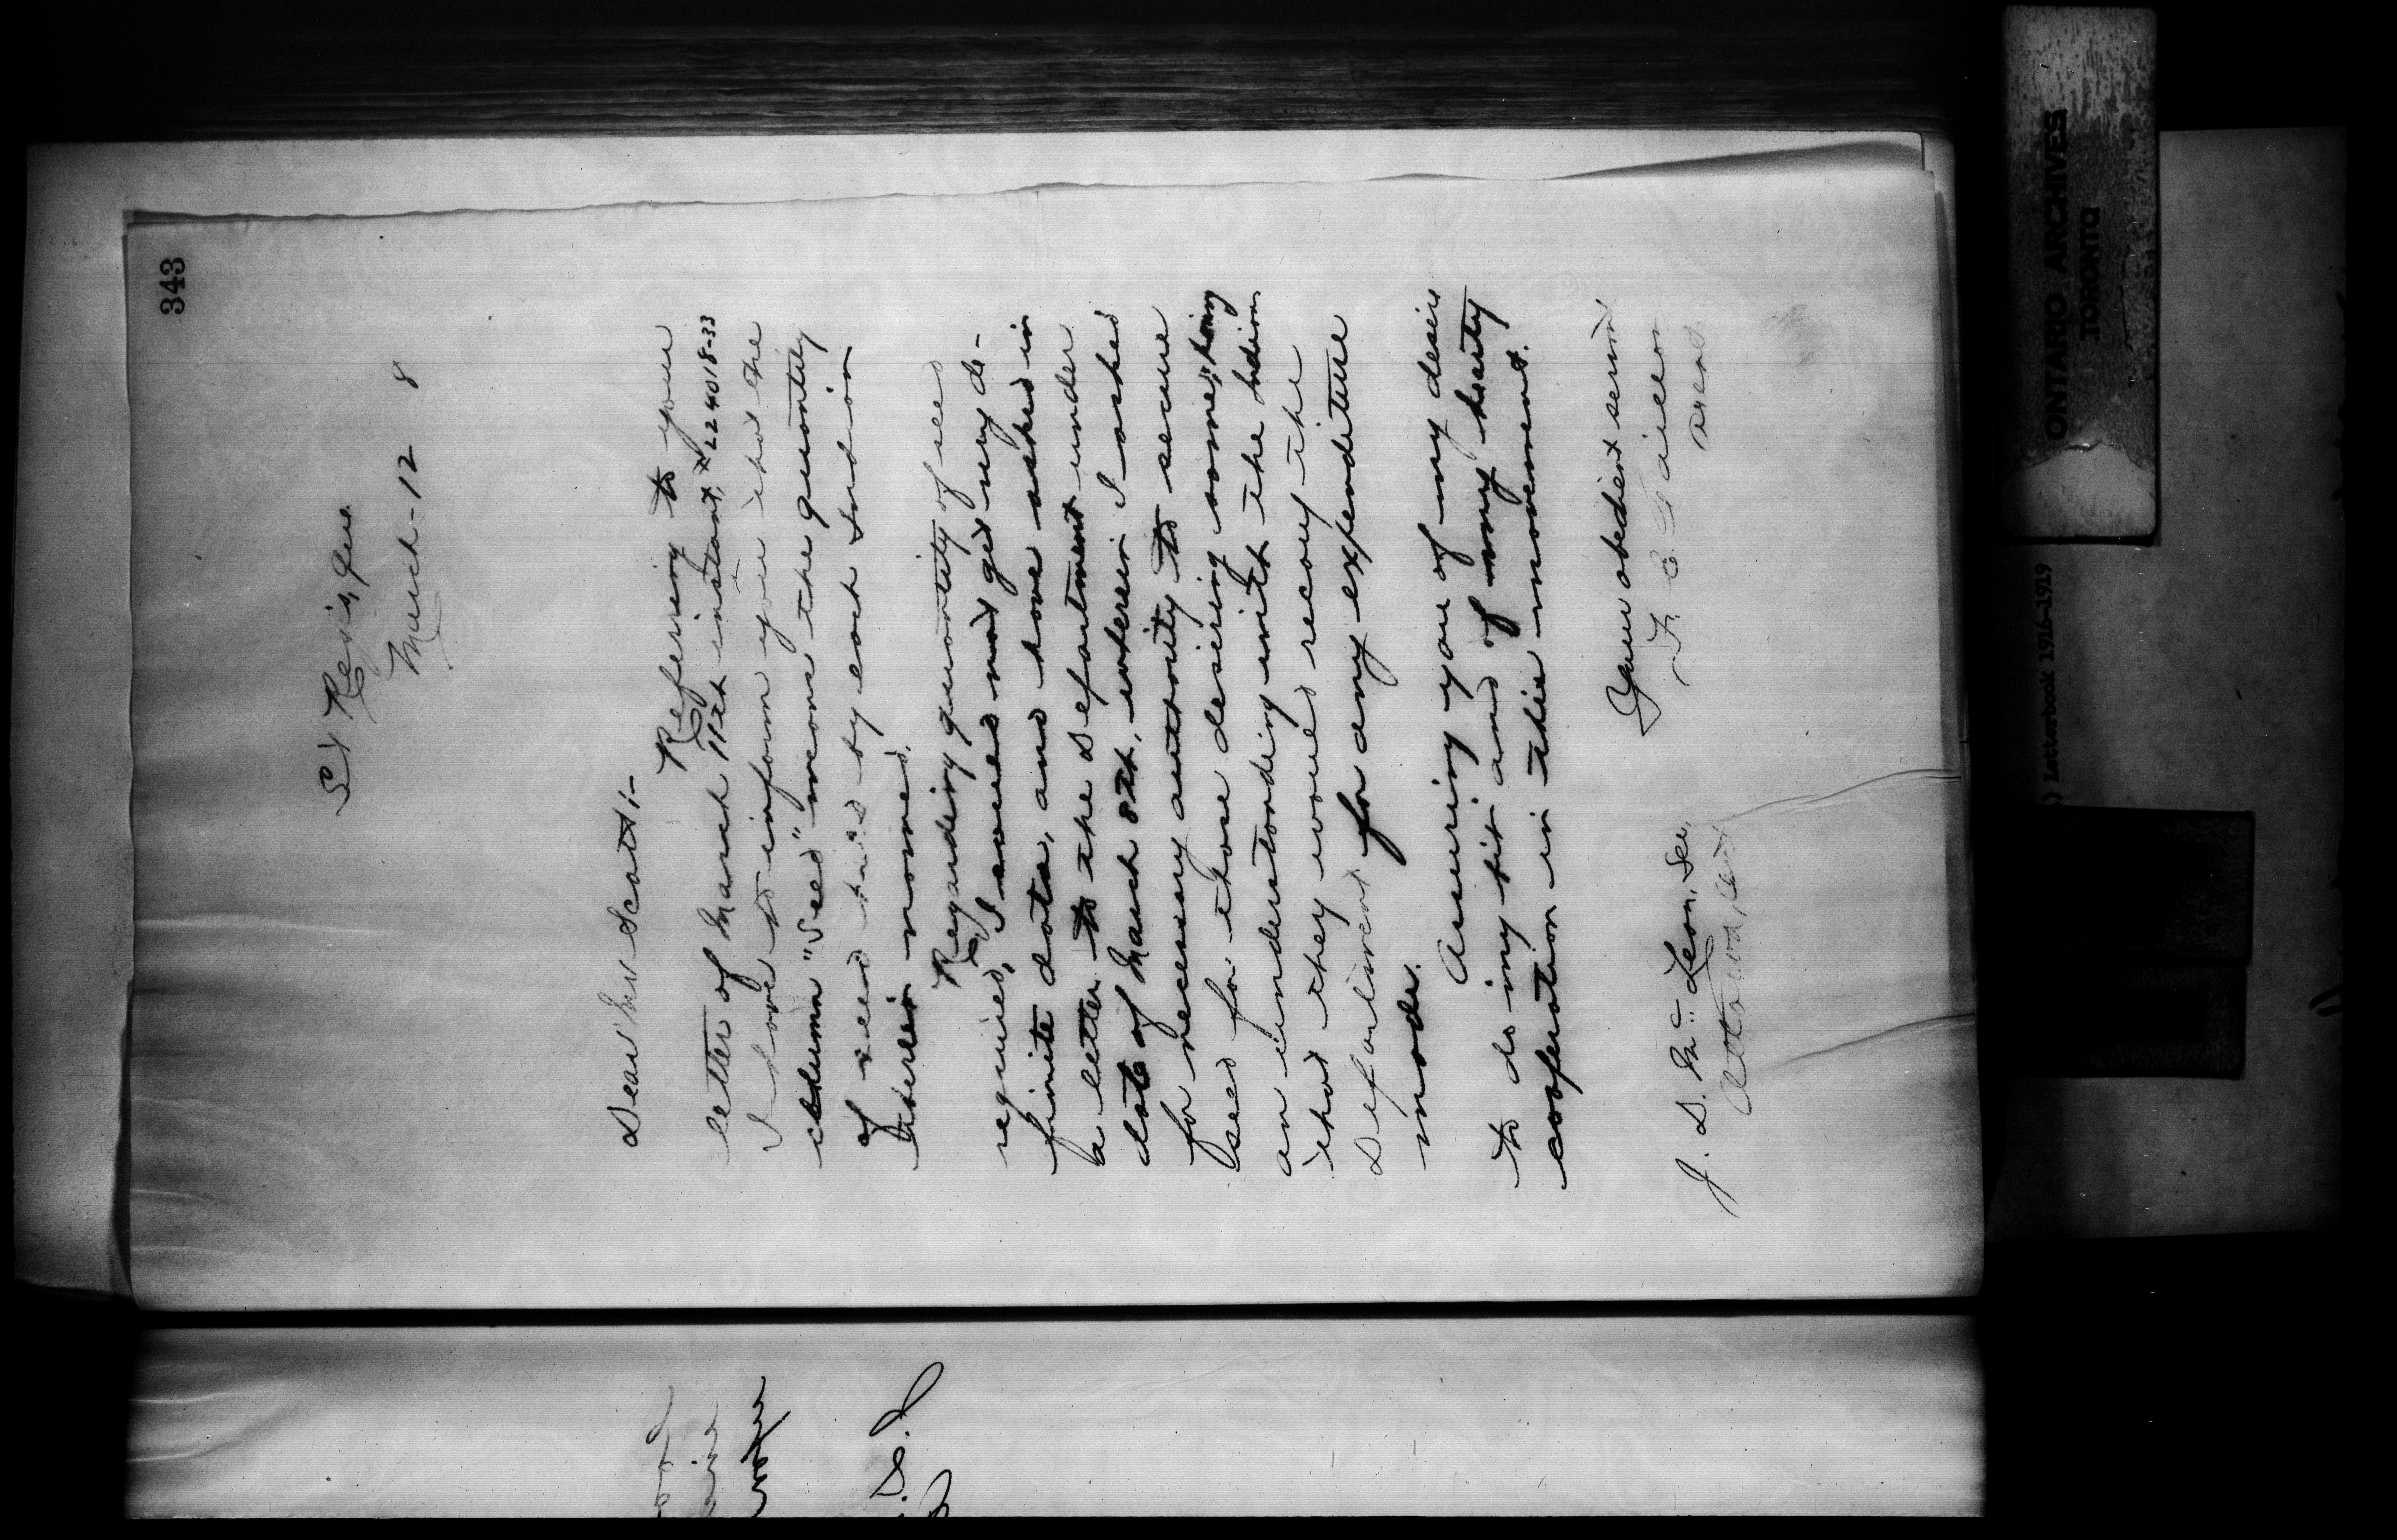 343
St Regis, Que
March - 12 8
Dear Mr Scott:-
Referring to your
letter of March 11th instant, # 224018-33
I have to inform you that the
column "Seed" means the quantity
of seed had by each Indian
therein named.
Regarding quantity of seed
required, I could not get very de-
finite data, and have asked in
a letter to the Department under
date of March 8th, wherein I asked
for necessary authority to secure
seed for those desiring some, having
an understanding with the Indians
that they would recoup the
Department for any expenditure
made.
Assuring you of my desire
to do my bit and of my hearty
cooperation in this movement.
Your obedient servant
F. E. Taillon
Agent
J. D. McLean, Sec.
Ottawa, Ont
ONTARIO ARCHIVES
TORONTO
) Letterbook 1916-1919